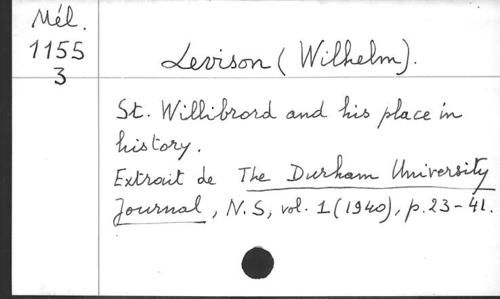 Mél.
1155
3
Levison (Wilhelm).
St. Willibrord and his place in
history.
Extrait de The Durham University
Journal, N.S, vol. 1 (1940), p. 23-41.